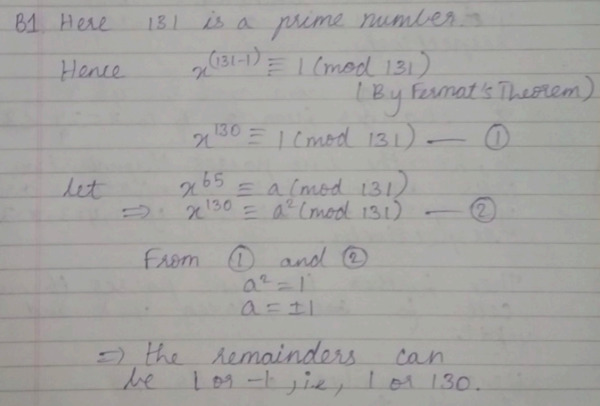 B1. Here 131 is a prime number.
Hence x^(131-1) ≡ 1 (mod 131)
(By Fermat's Theorem)
x^130 ≡ 1 (mod 131) — ①
let x^65 ≡ a (mod 131)
⇒ x^130 ≡ a² (mod 131) — ②
From ① and ②
a² = 1
a = ±1
⇒ the remainders can
be 1 or -1, ie, 1 or 130.